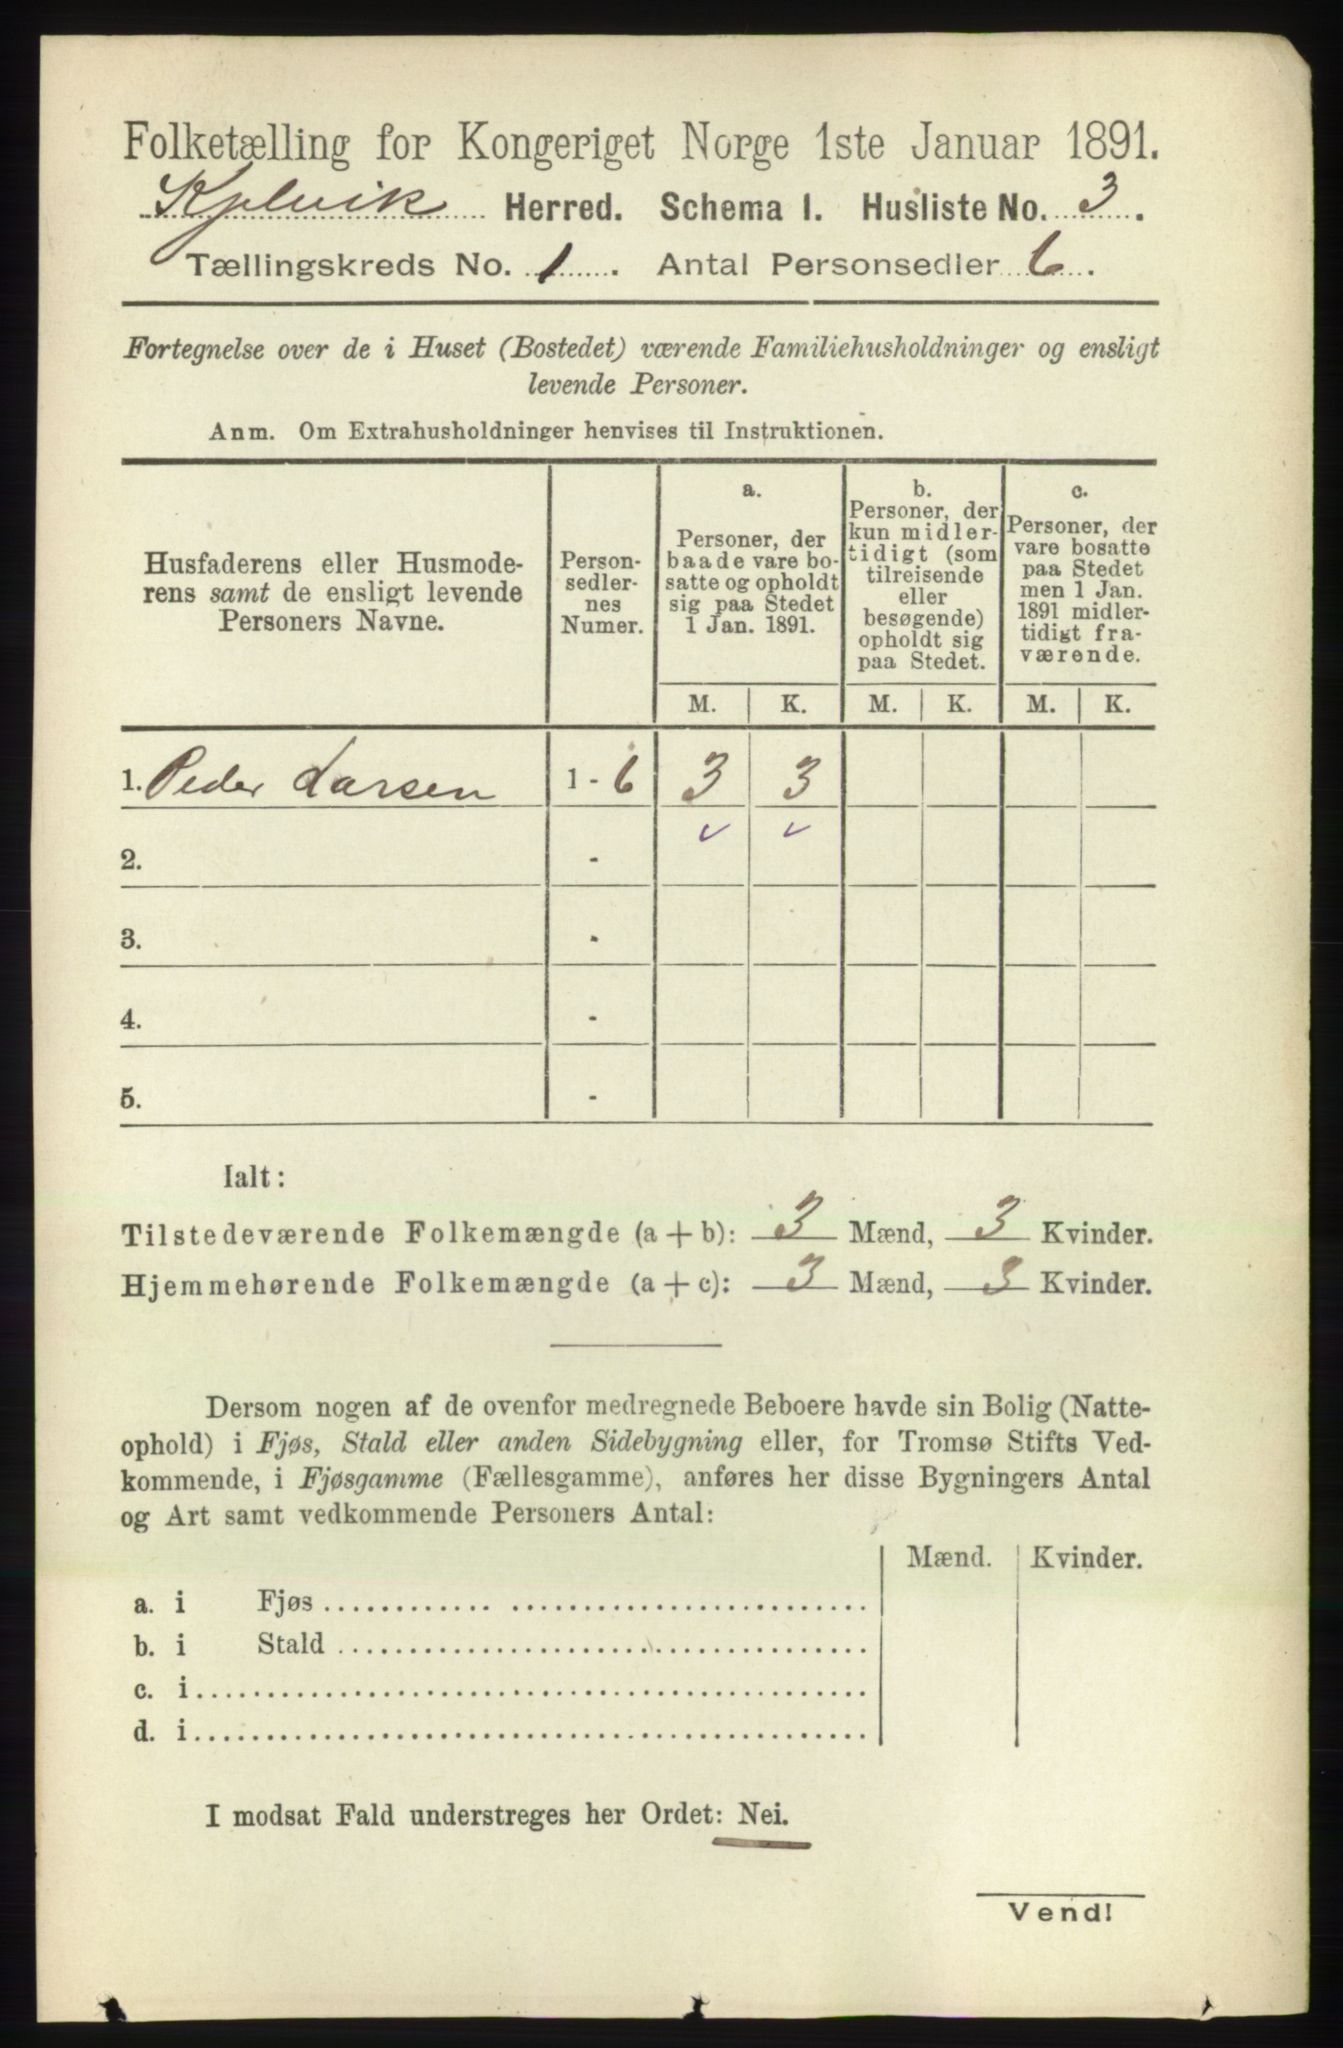 Folketælling for Kongeriget Norge 1ste Januar 1891.
Kjelvik Herred. Schema 1. Husliste No. 3.
Tællingskreds No. 1. Antal Personsedler 6.
Fortegnelse over de i Huset (Bostedet) værende Familiehusholdninger og ensligt
levende Personer.
Anm. Om Extrahusholdninger henvises til Instruktionen.
Husfaderens eller Husmode-
rens samt de ensligt levende
Personers Navne.
Person-
sedler-
nes
Numer.
a.
Personer, der
baade vare bo-
satte og opholdt
sig paa Stedet
1 Jan. 1891.
b.
Personer, der
kun midler-
tidigt (som
tilreisende
eller
besøgende)
opholdt sig
paa Stedet.
c.
Personer, der
vare bosatte
paa Stedet
men 1 Jan.
1891 midler-
tidigt fra-
værende.
M. K. M. K. M. K.
1. Peder Larsen 1 - 6 3 3
2. -
3. -
4. -
5. -
Ialt:
Tilstedeværende Folkemængde (a + b): 3 Mænd, 3 Kvinder.
Hjemmehørende Folkemængde (a + c): 3 Mænd, 3 Kvinder.
Dersom nogen af de ovenfor medregnede Beboere havde sin Bolig (Natte-
ophold) i Fjøs, Stald eller anden Sidebygning eller, for Tromsø Stifts Ved-
kommende, i Fjøsgamme (Fællesgamme), anføres her disse Bygningers Antal
og Art samt vedkommende Personers Antal:
Mænd. Kvinder.
a. i Fjøs
b. i Stald
c. i
d. i
I modsat Fald understreges her Ordet: Nei.
Vend!